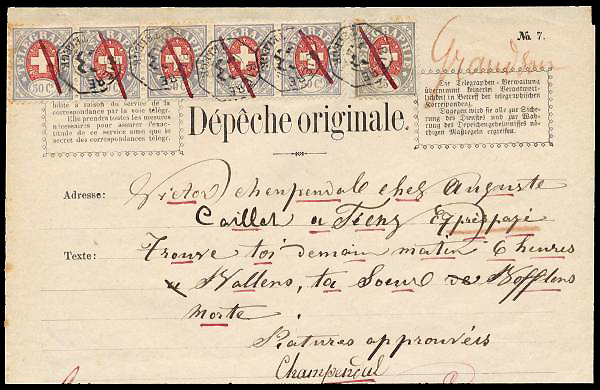 TELEGRAPHIE
50 C.
No. 7.
Grandson
hörde à raison du service de la
correspondance par la voie télégr.
Elle prendra toutes les mesures
nécessaires pour assurer l'exac-
titude de ce service ainsi que le
secret des correspondances télégr.
Die Telegraphen-Verwaltung
übernimmt keinerlei Verantwort-
lichkeit in Betreff der telegraphischen
Korrespondenz.
Dagegen wird sie alle zur Siche-
rung des Dienstes und zur Wah-
rung des Depeschengeheimnisses nö-
thigen Maßregeln ergreifen.
Dépêche originale.
Adresse: Victor chez Auguste
Caillet a Exprès payé
Texte: Trouve toi demain matin 6 heures
a Vallens, ta Soeur de Bofflens
morte.
Ratures approuvées